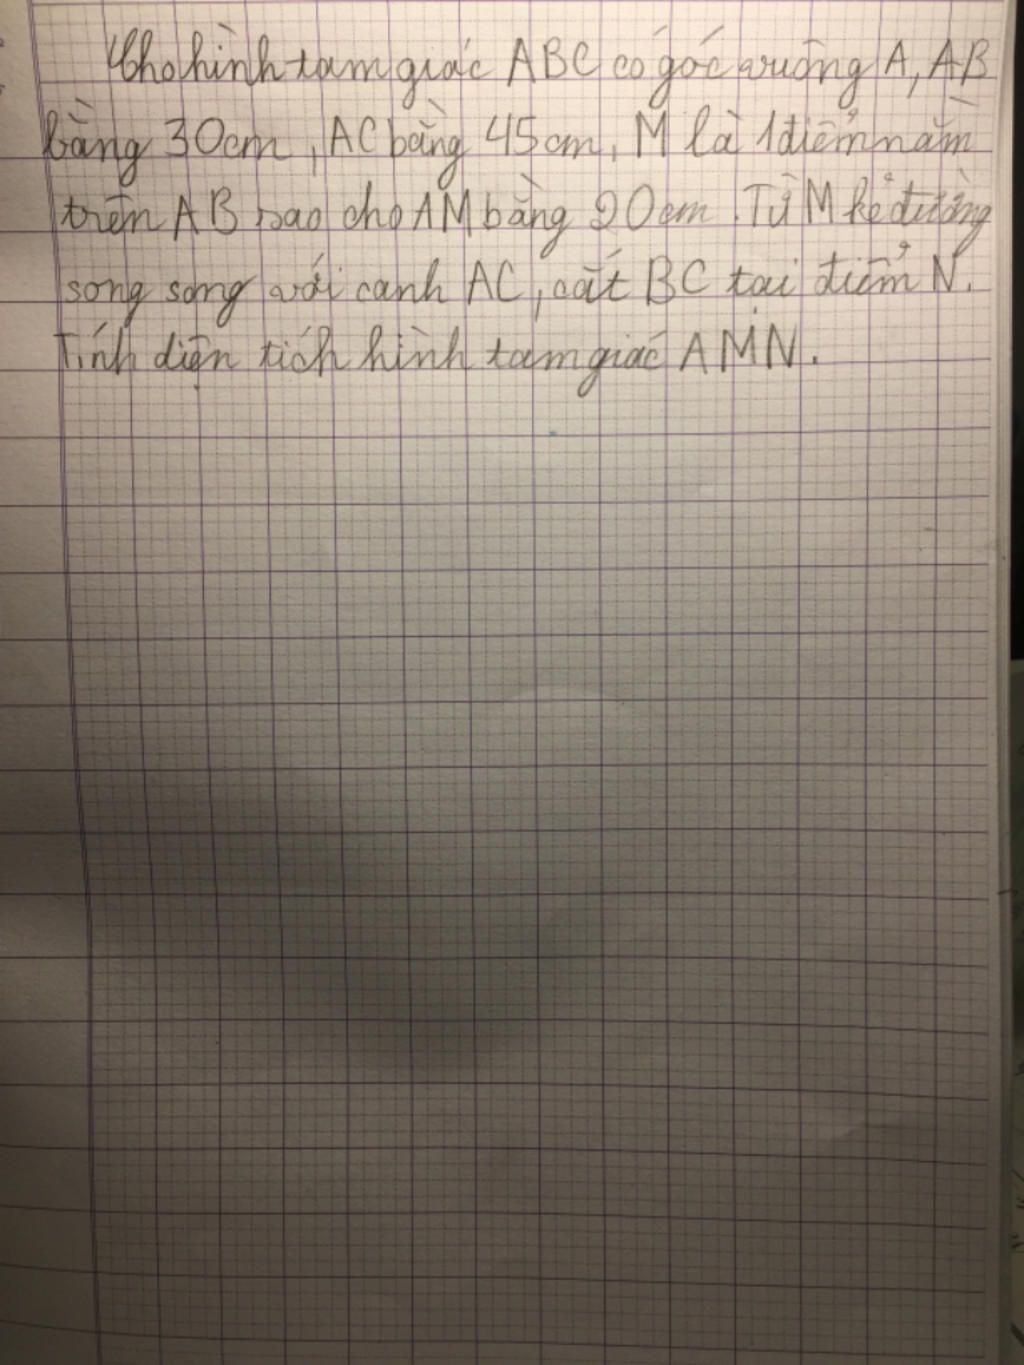 Cho hình tam giác ABC có góc vuông A, AB
bằng 30cm, AC bằng 45cm, M là 1 điểm nằm
trên AB sao cho AM bằng 20cm. Từ M kẻ đường
song song với cạnh AC, cắt BC tại điểm N.
Tính diện tích hình tam giác AMN.